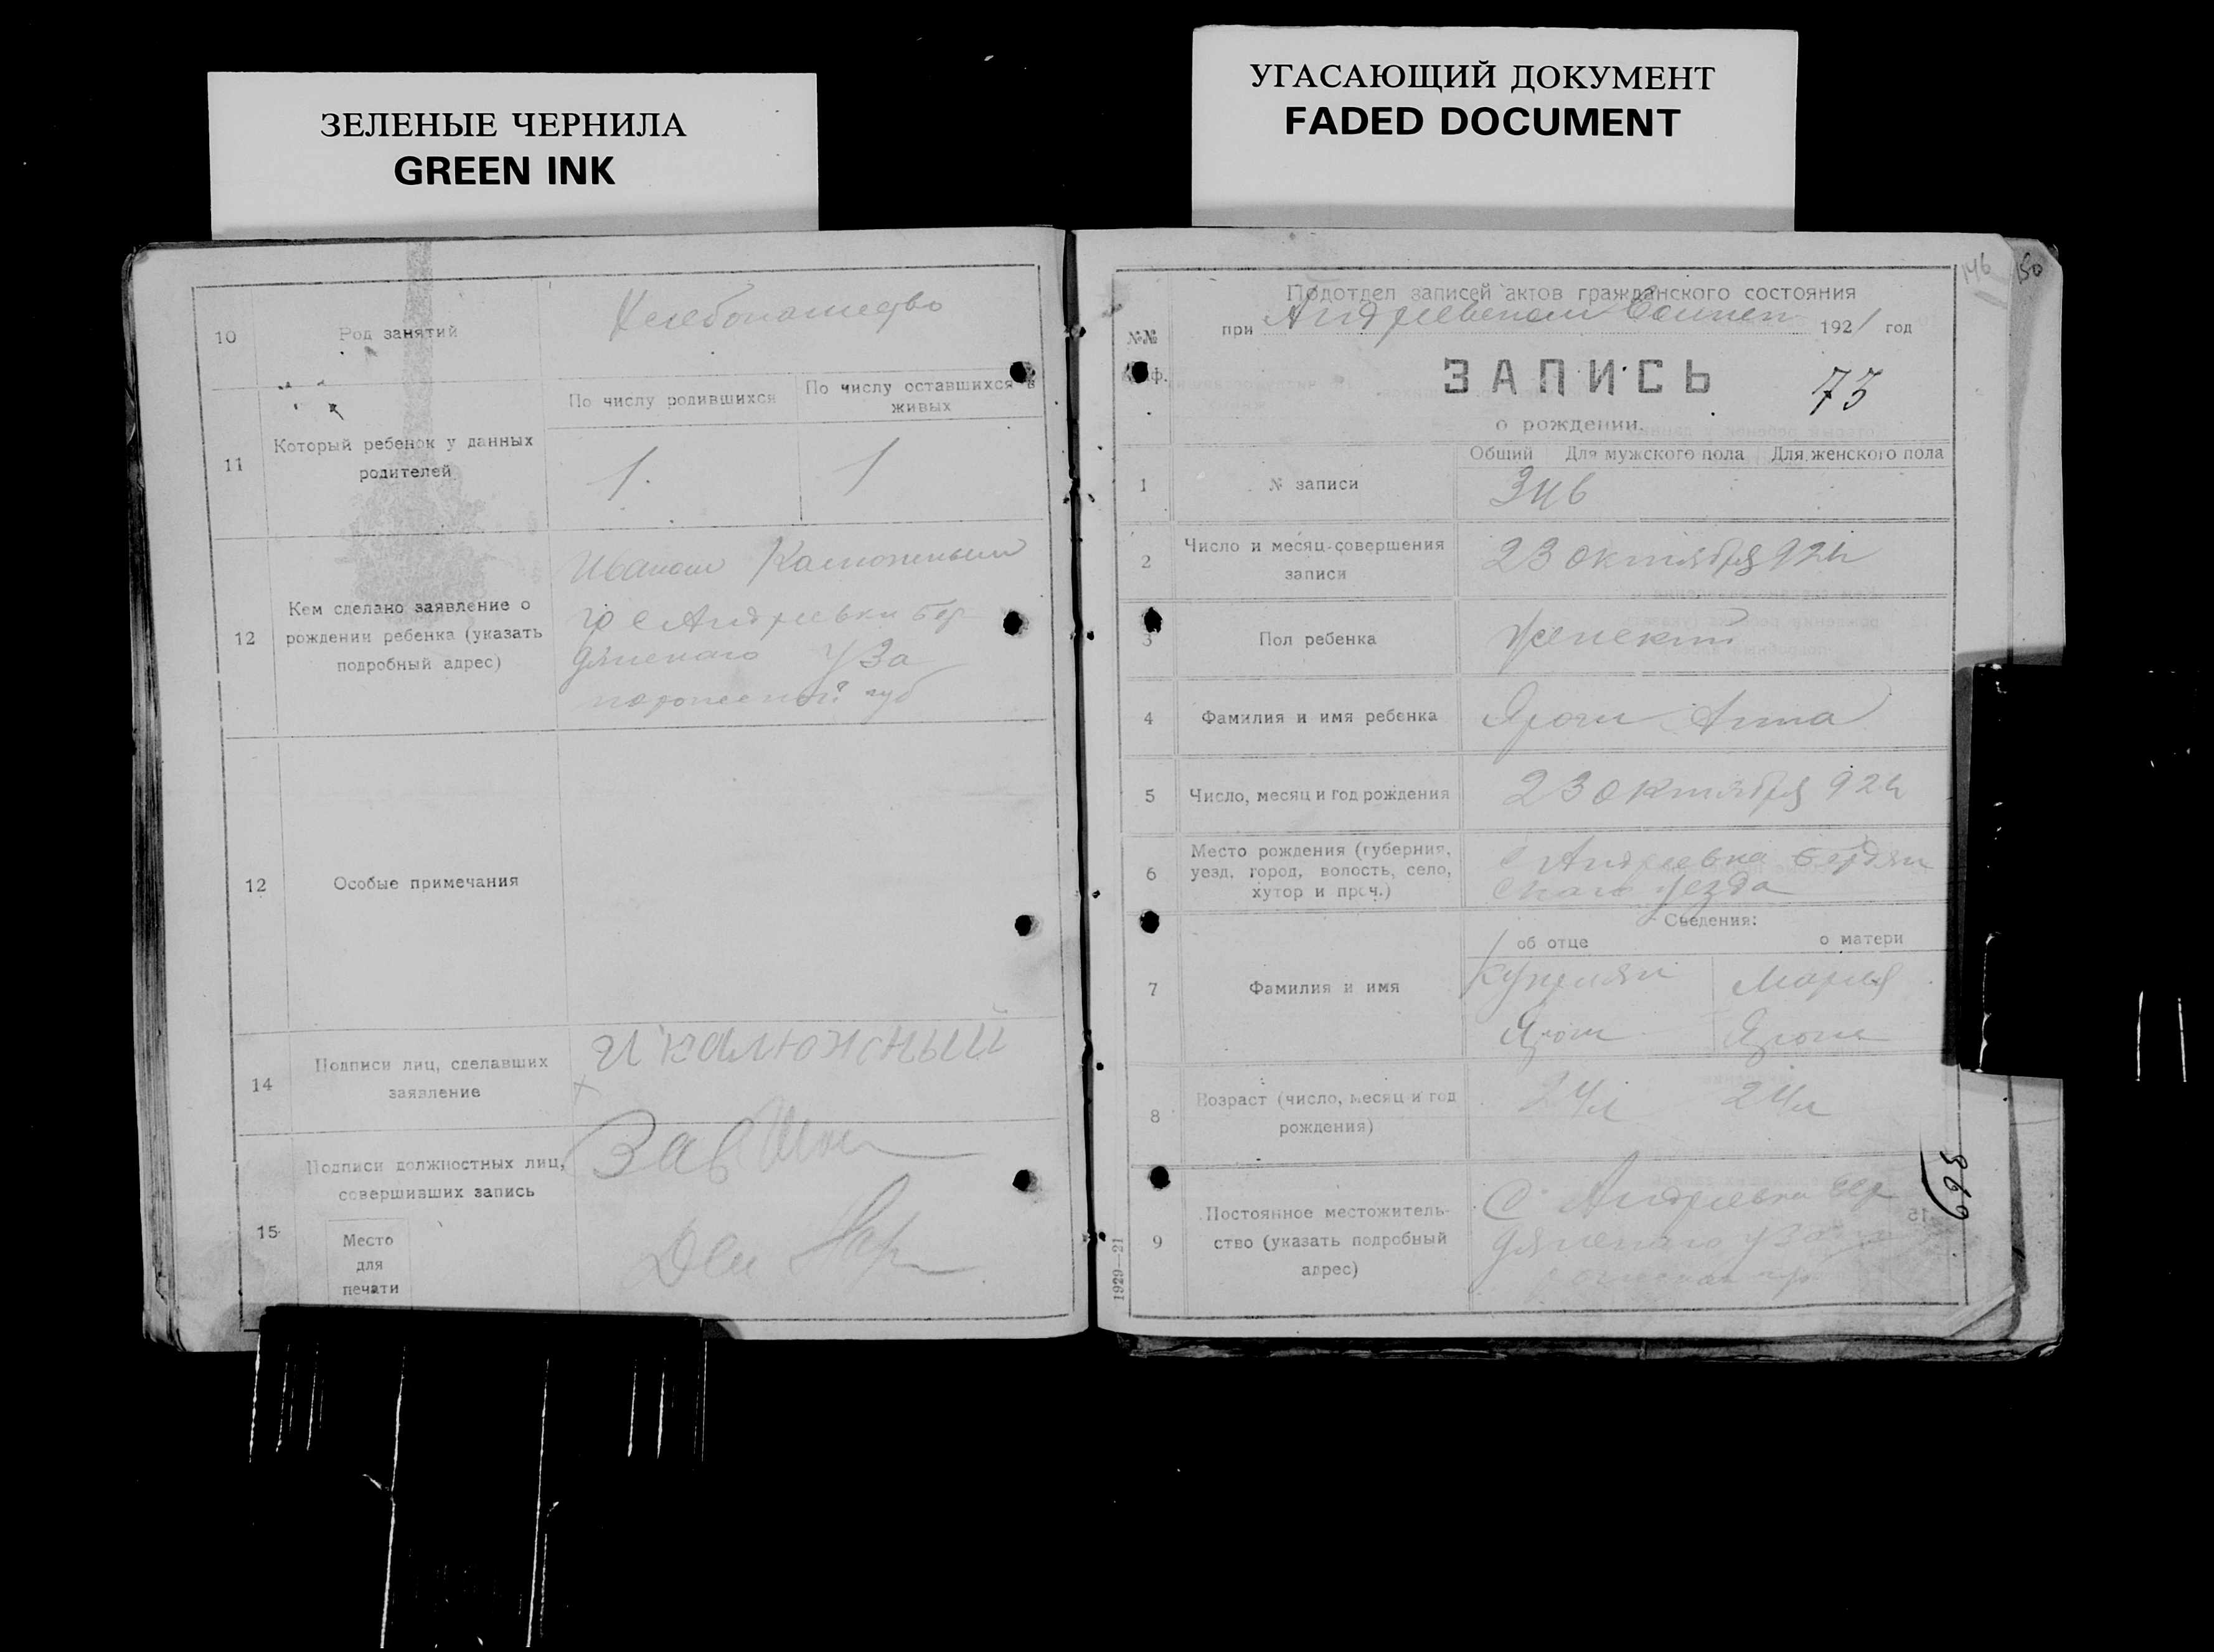 ЗЕЛЕНЫЕ ЧЕРНИЛА
GREEN INK
УГАСАЮЩИЙ ДОКУМЕНТ
FADED DOCUMENT
10
Род занятий
Хлебопашество
11
Который ребенок у данных
родителей
По числу родившихся
По числу оставшихся в
живых
1.
1
12
Кем сделано заявление о
рождении ребенка (указать
подробный адрес)
Иваном Калюжным
с Андреевки Бер
дянскаго У За
порожской губ
12
Особые примечания
14
Подписи лиц, сделавших
заявление
И Калюжный
15
Подписи должностных лиц,
совершивших запись
Место
для
печати
Зав
146
150
№№
Подотдел записей актов гражданского состояния
при Андреевском 1921 год
ЗАПИСЬ
73
о рождении.
1
№ записи
Общий
Для мужского пола
Для женского пола
346
2
Число и месяц совершения
записи
23 октября 921
3
Пол ребенка
Женский
4
Фамилия и имя ребенка
Ярош Анна
5
Число, месяц и год рождения
23 октября 921
6
Место рождения (губерния,
уезд, город, волость, село,
хутор и проч.)
с Андреевка Бердян
скаго уезда
Сведения:
об отце
о матери
7
Фамилия и имя
Мария
Ярош
Ярош
8
Возраст (число, месяц и год
рождения)
24 л
24 л
9
Постоянное местожитель-
ство (указать подробный
адрес)
С Андреевки Бер
дянскаго
1929—21